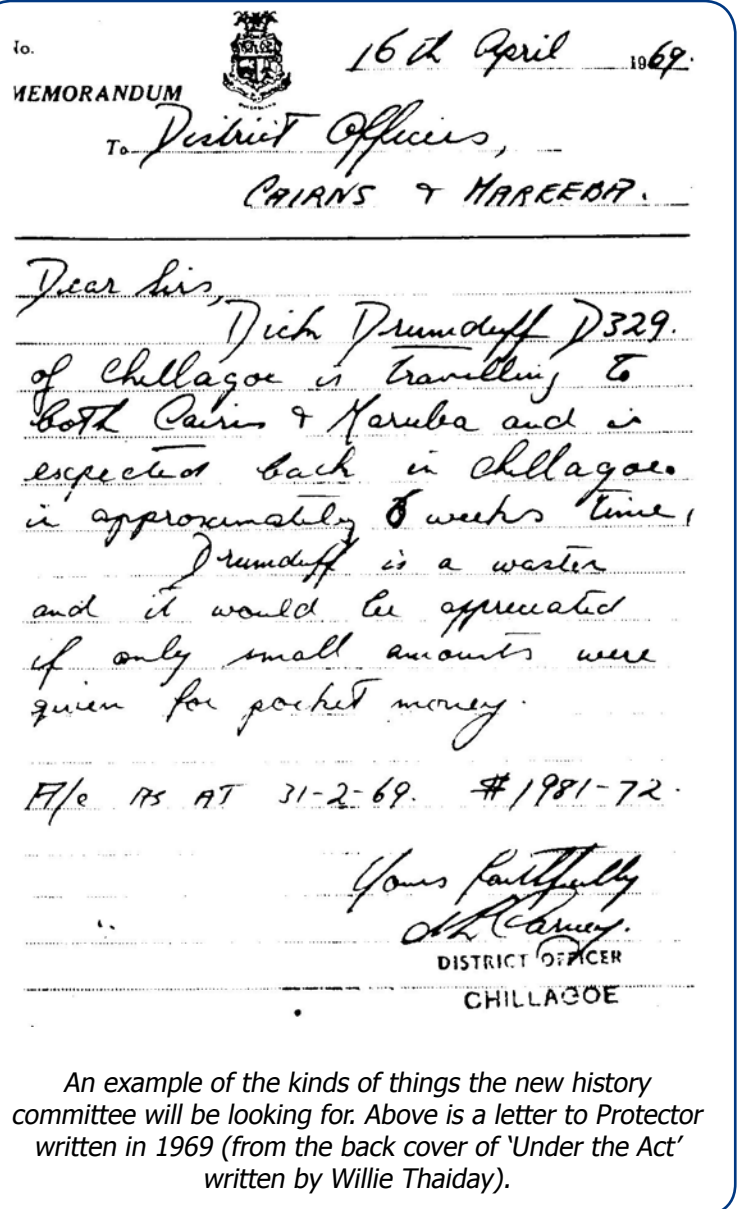 No.
16th April 1969.
MEMORANDUM
To District Officers,
CAIRNS & MAREEBA.
Dear Sirs,
Dick Drumduff D329.
of Chillagoe is travelling to
both Cairns & Mareeba and is
expected back in Chillagoe
in approximately 6 weeks time,
Drumduff is a waster
and it would be appreciated
if only small amounts were
given for pocket money.
A/c AS AT 31-2-69. $1981-72.
Yours faithfully
Carney.
DISTRICT OFFICER
CHILLAGOE
An example of the kinds of things the new history
committee will be looking for. Above is a letter to Protector
written in 1969 (from the back cover of ‘Under the Act’
written by Willie Thaiday).